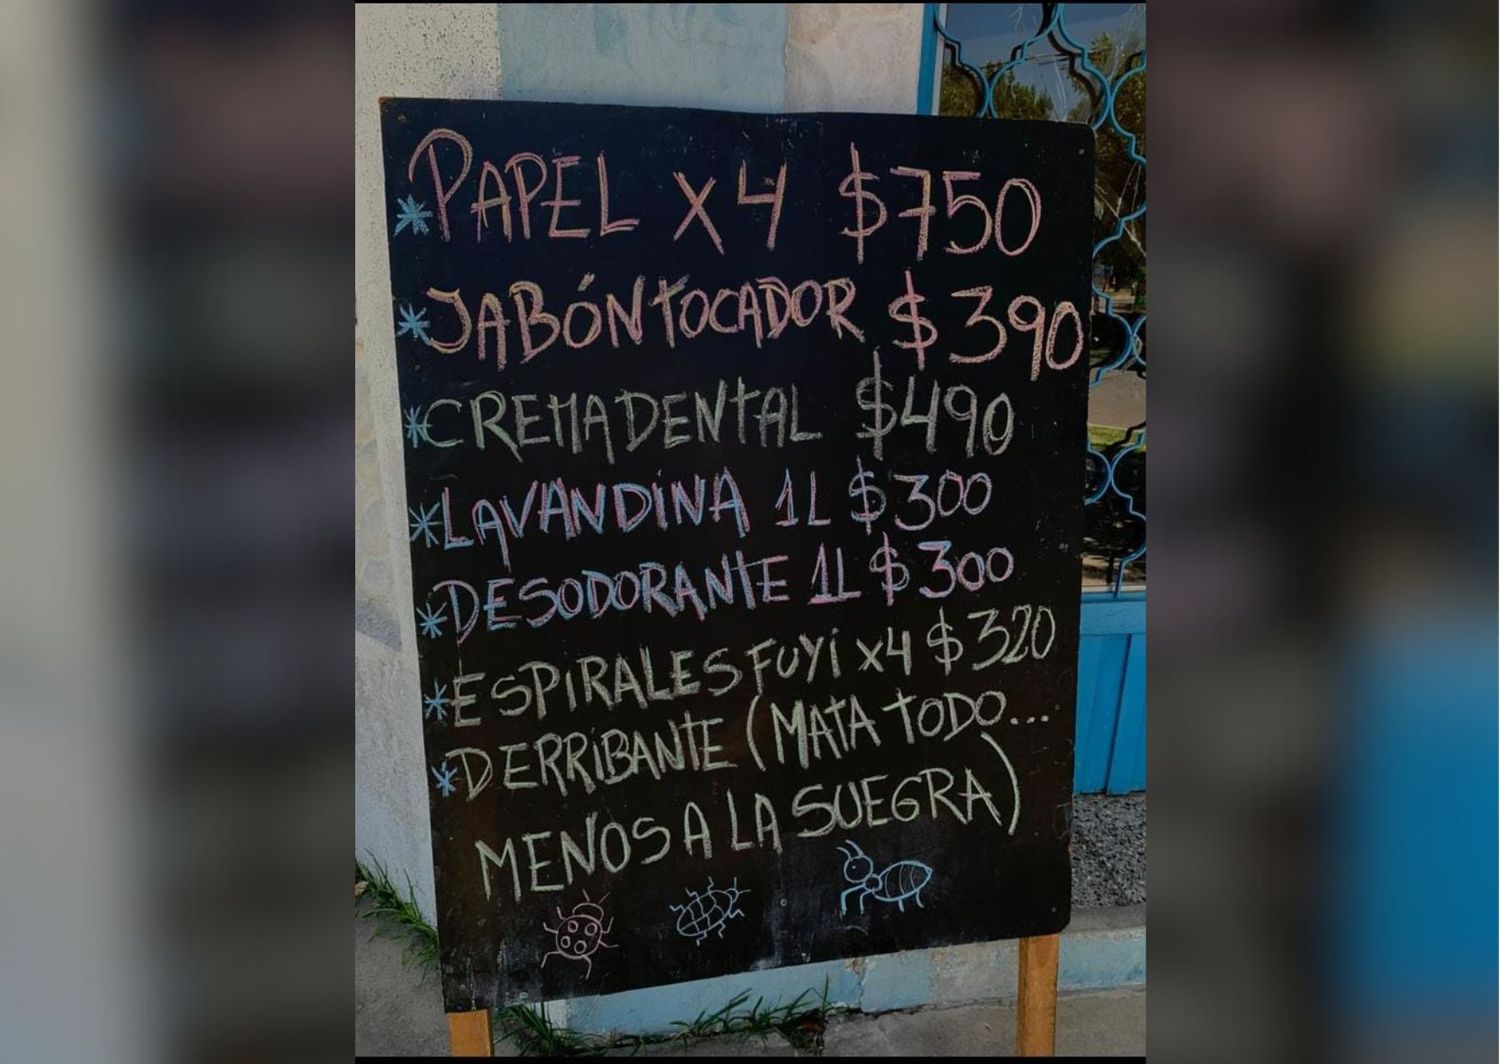 * PAPEL X 4 $750
* JABÓN TOCADOR $390
* CREMA DENTAL $490
* LAVANDINA 1L $300
* DESODORANTE 1L $300
* ESPIRALES FUYI X4 $320
* DERRIBANTE (MATA TODO...
MENOS A LA SUEGRA)